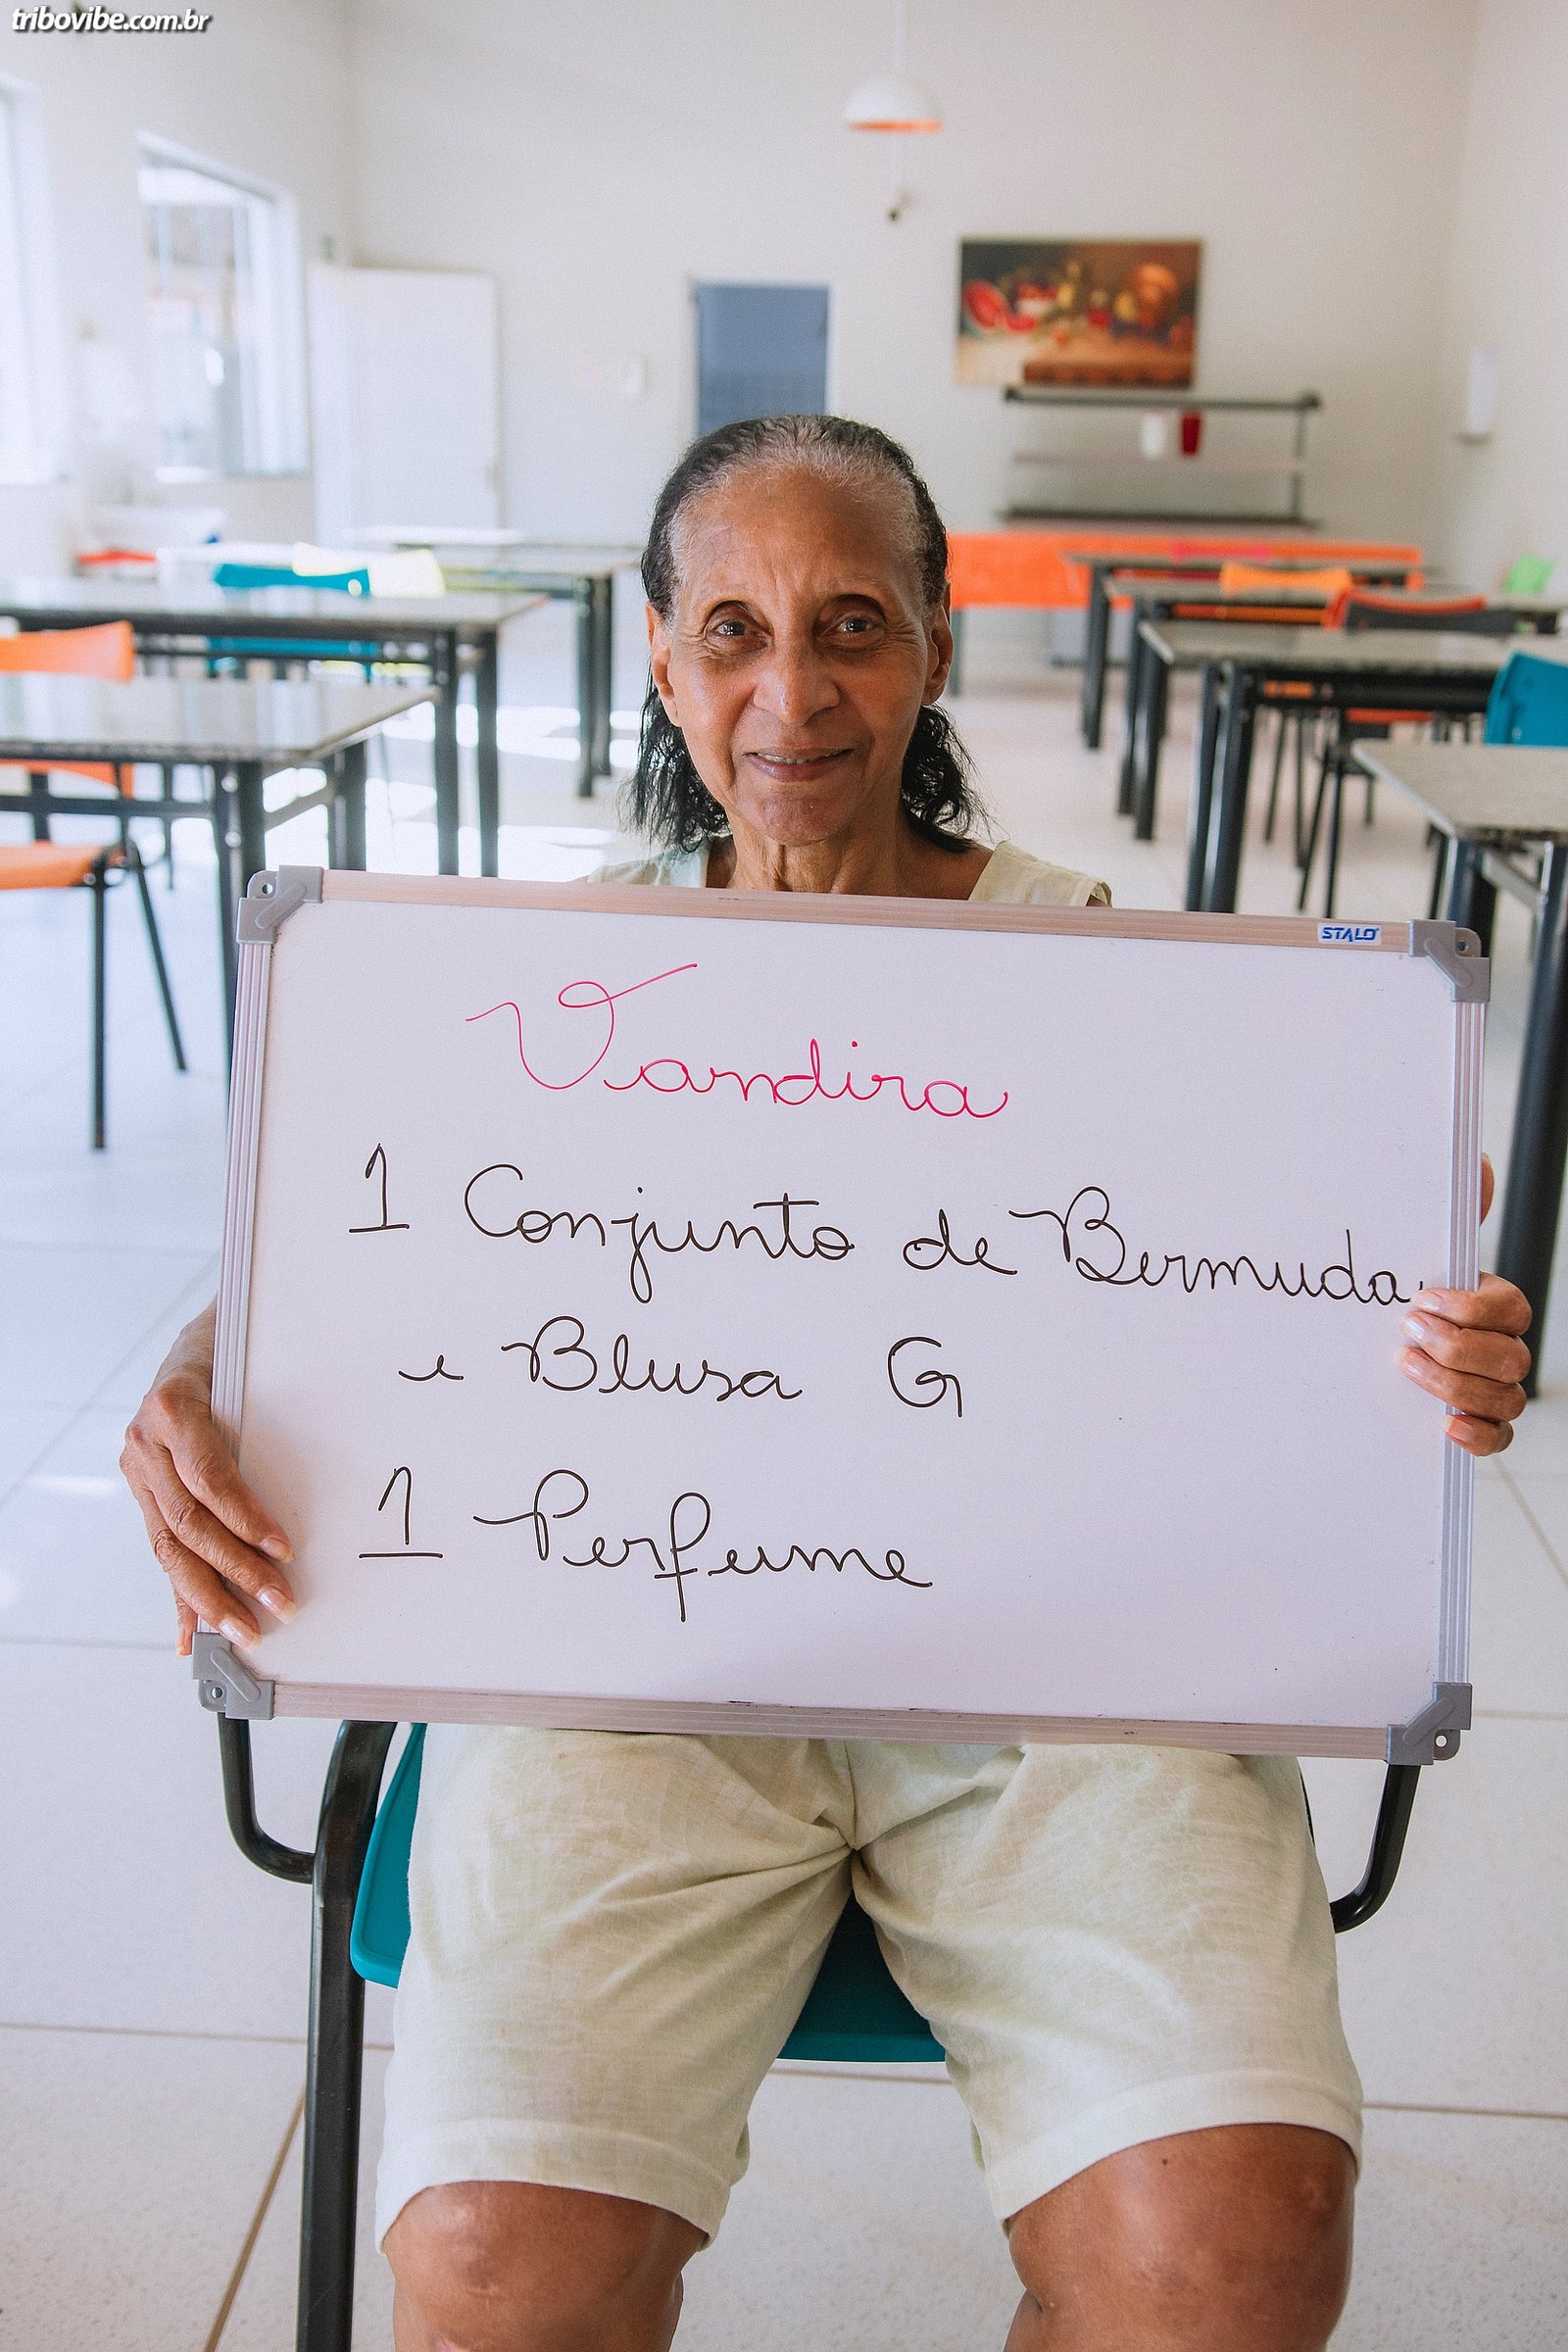 tribovibe.com.br
STALO
Vandira
1 Conjunto de Bermuda
e Blusa G
1 Perfume